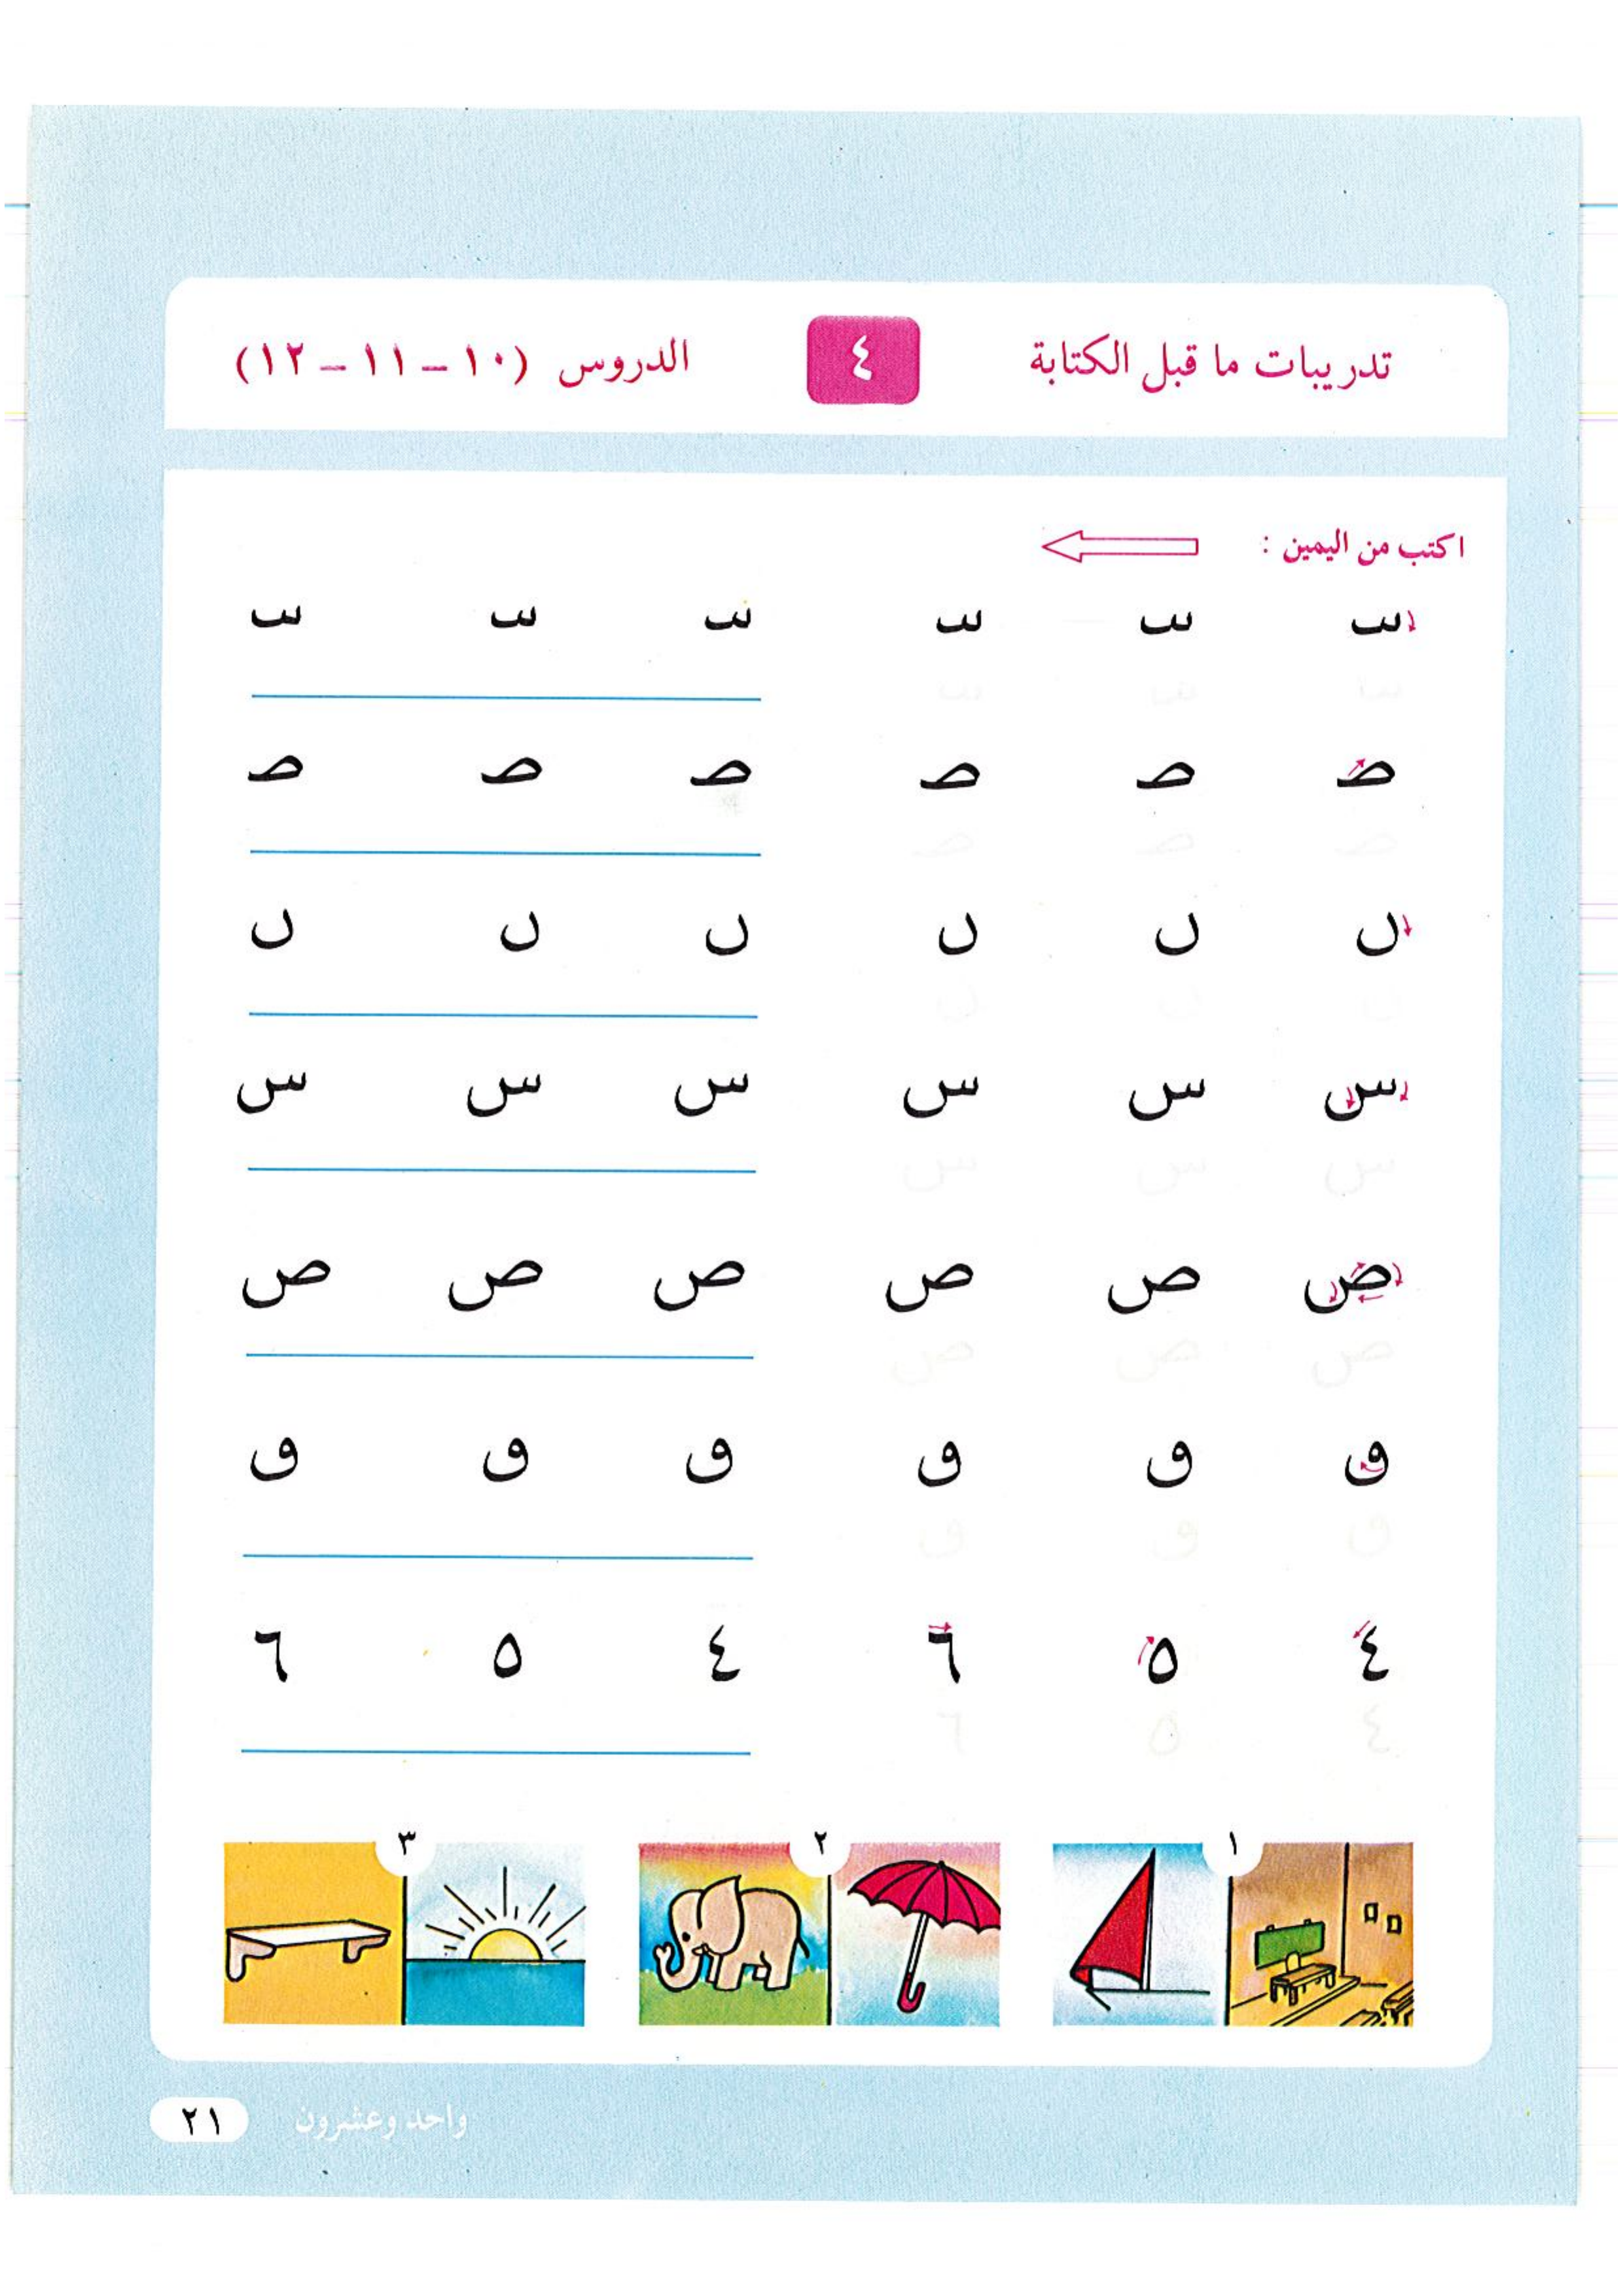 تدريبات ما قبل الكتابة ٤ الدروس (١٠ – ١١ – ١٢)
اكتب من اليمين :
سـ سـ سـ سـ سـ سـ
صـ صـ صـ صـ صـ صـ
ں ں ں ں ں ں
س س س س س س
ص ص ص ص ص ص
ٯ ٯ ٯ ٯ ٯ ٯ
٤ ٥ ٦ ٤ ٥ ٦
١ ٢ ٣
واحد وعشرون ٢١